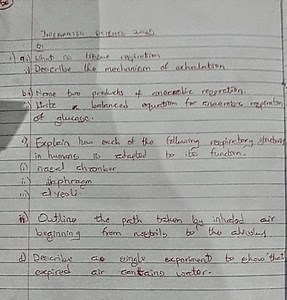 INTEGRATED SCIENCE
Q1
1) a i) What is tissue respiration
ii) Describe the mechanism of exhalation
b i) Name two products of anaerobic respiration.
ii) Write a balanced equation for anaerobic respiration
of glucose.
c) Explain how each of the following respiratory structures
in humans is adapted to its function.
i) nasal chamber
ii) diaphragm
iii) alveoli
ii) Outline the path taken by inhaled air
beginning from nostrils to the alveoli
d) Describe a single experiment to show that
expired air contains water.